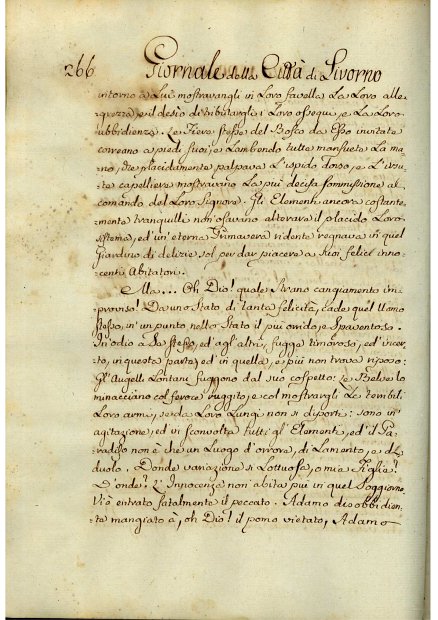 266 Giornale della Città di Livorno
intorno a Lui mostravangli in Loro favella La Loro alle-
grezza, e il desio di tributargli i Loro ossequi, e La Loro
ubbidienza. Le Fiere stesse del Bosco da Esso invitate
correano a piedi suoi, e Lambendo tutte mansuete La ma
no, che placidamente palpava L'ispido dorso, e L'irsu-
te capelliere mostravano La più decisa sommissione al
comando del Loro Signore. Gli Elementi ancora costante-
mente tranquilli non osavano alterare il placido Loro
sistema, ed un'eterna Primavera ridente regnava in quel
Giardino di delizie sol per dar piacere a Suoi felici inno-
centi Abitatori.
Ma... Oh Dio! quale strano cangiamento im-
provviso! Da uno Stato di tanta felicità, cade quel Uomo
stesso in un punto nello Stato il più orrido, e Spaventoso.
In odio a Se stesso, ed agl'altri, fugge timoroso, ed incer-
to, in questa parte, ed in quella, e più non trova riposo:
Gl'Augelli Lontani fuggono dal suo cospetto: le Belve lo
minacciano col feroce ruggito, e col mostrargli Le terribili
Loro armi, se da Loro Lungi non si diparte: sono in
agitazione, ed in sconvolta tutti gl'Elementi, ed il Pa-
radiso non è che un Luogo d'orrore, di Lamento, e di
duolo. Donde variazione si Luttuosa, o mie Figlie?
D'onde? L'Innocenza non abita più in quel Soggiorno
Vi è entrato fatalmente il peccato. Adamo disobbidien-
te mangiato à, oh Dio! il pomo vietato, Adamo